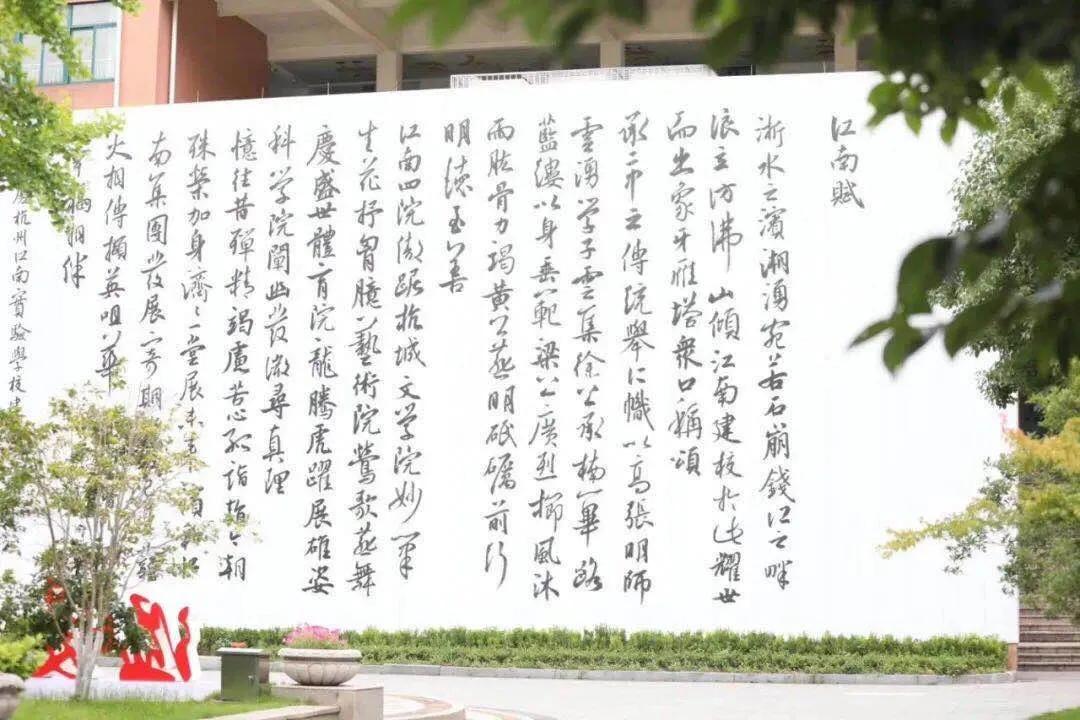 江南賦
浙水之濱潮湧宛若石崩錢江之畔
浪立彷彿山傾江南建校於此耀世
而出象牙雁塔衆口稱頌
承二中之傳統舉仁幟以高張明師
雲湧學子雲集徐公承楠篳路
藍縷以身垂範梁公廣烈櫛風沐
雨肱骨力竭黃公燕明砥礪前行
明德至善
江南四院傲踞杭城文學院妙筆
生花抒胸臆藝術院鶯歌燕舞
慶盛世體育院龍騰虎躍展雄姿
科學院闡幽發微尋真理
憶往昔殫精竭慮苦心孤詣指今朝
殊榮加身濟濟一堂展未來
南集團發展可期
火相傳擷英咀華
杭州江南實驗學校